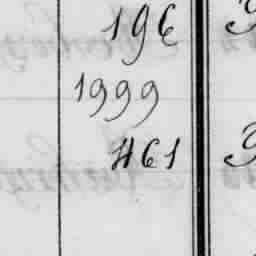 196
1999
461